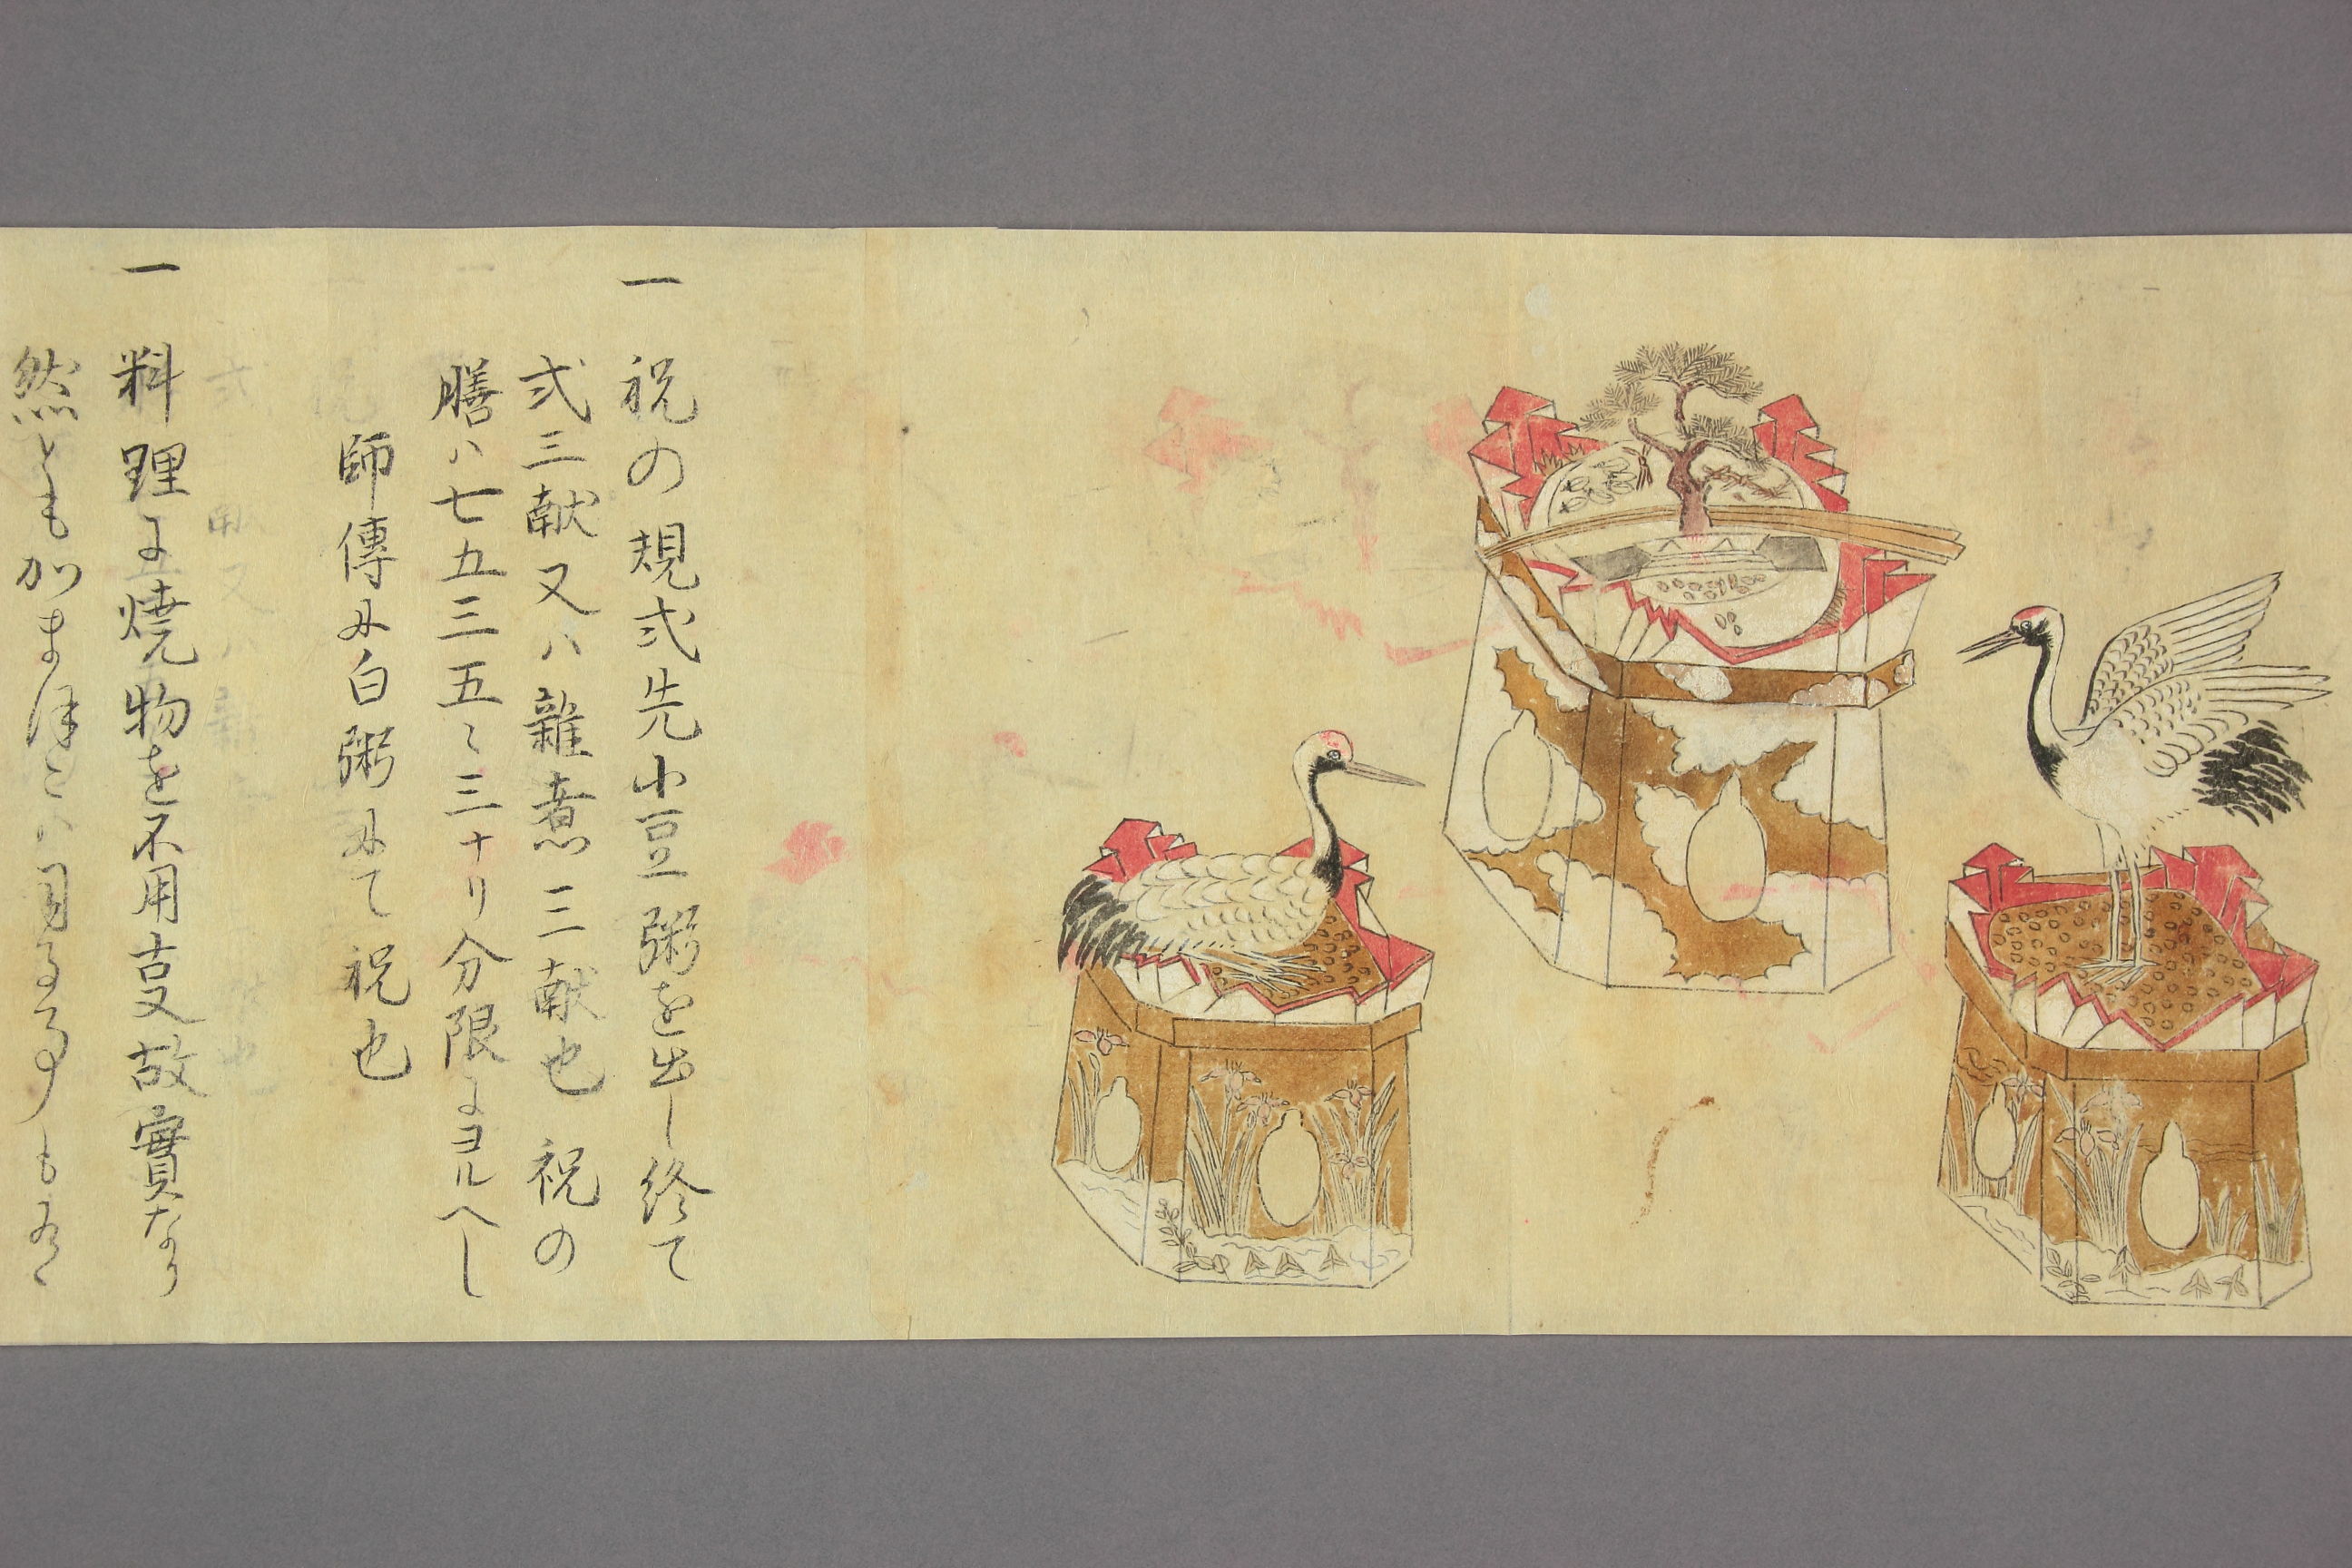 一 祝の規式先小豆粥を出し終て
式三献又ハ雑煮三献也 祝の
膳ハ七五三五々三ナリ分限によヨルヘし
師傳に白粥にて祝也
一 料理に焼物を不用支故實なり
然とも かまほこハ用る事も有